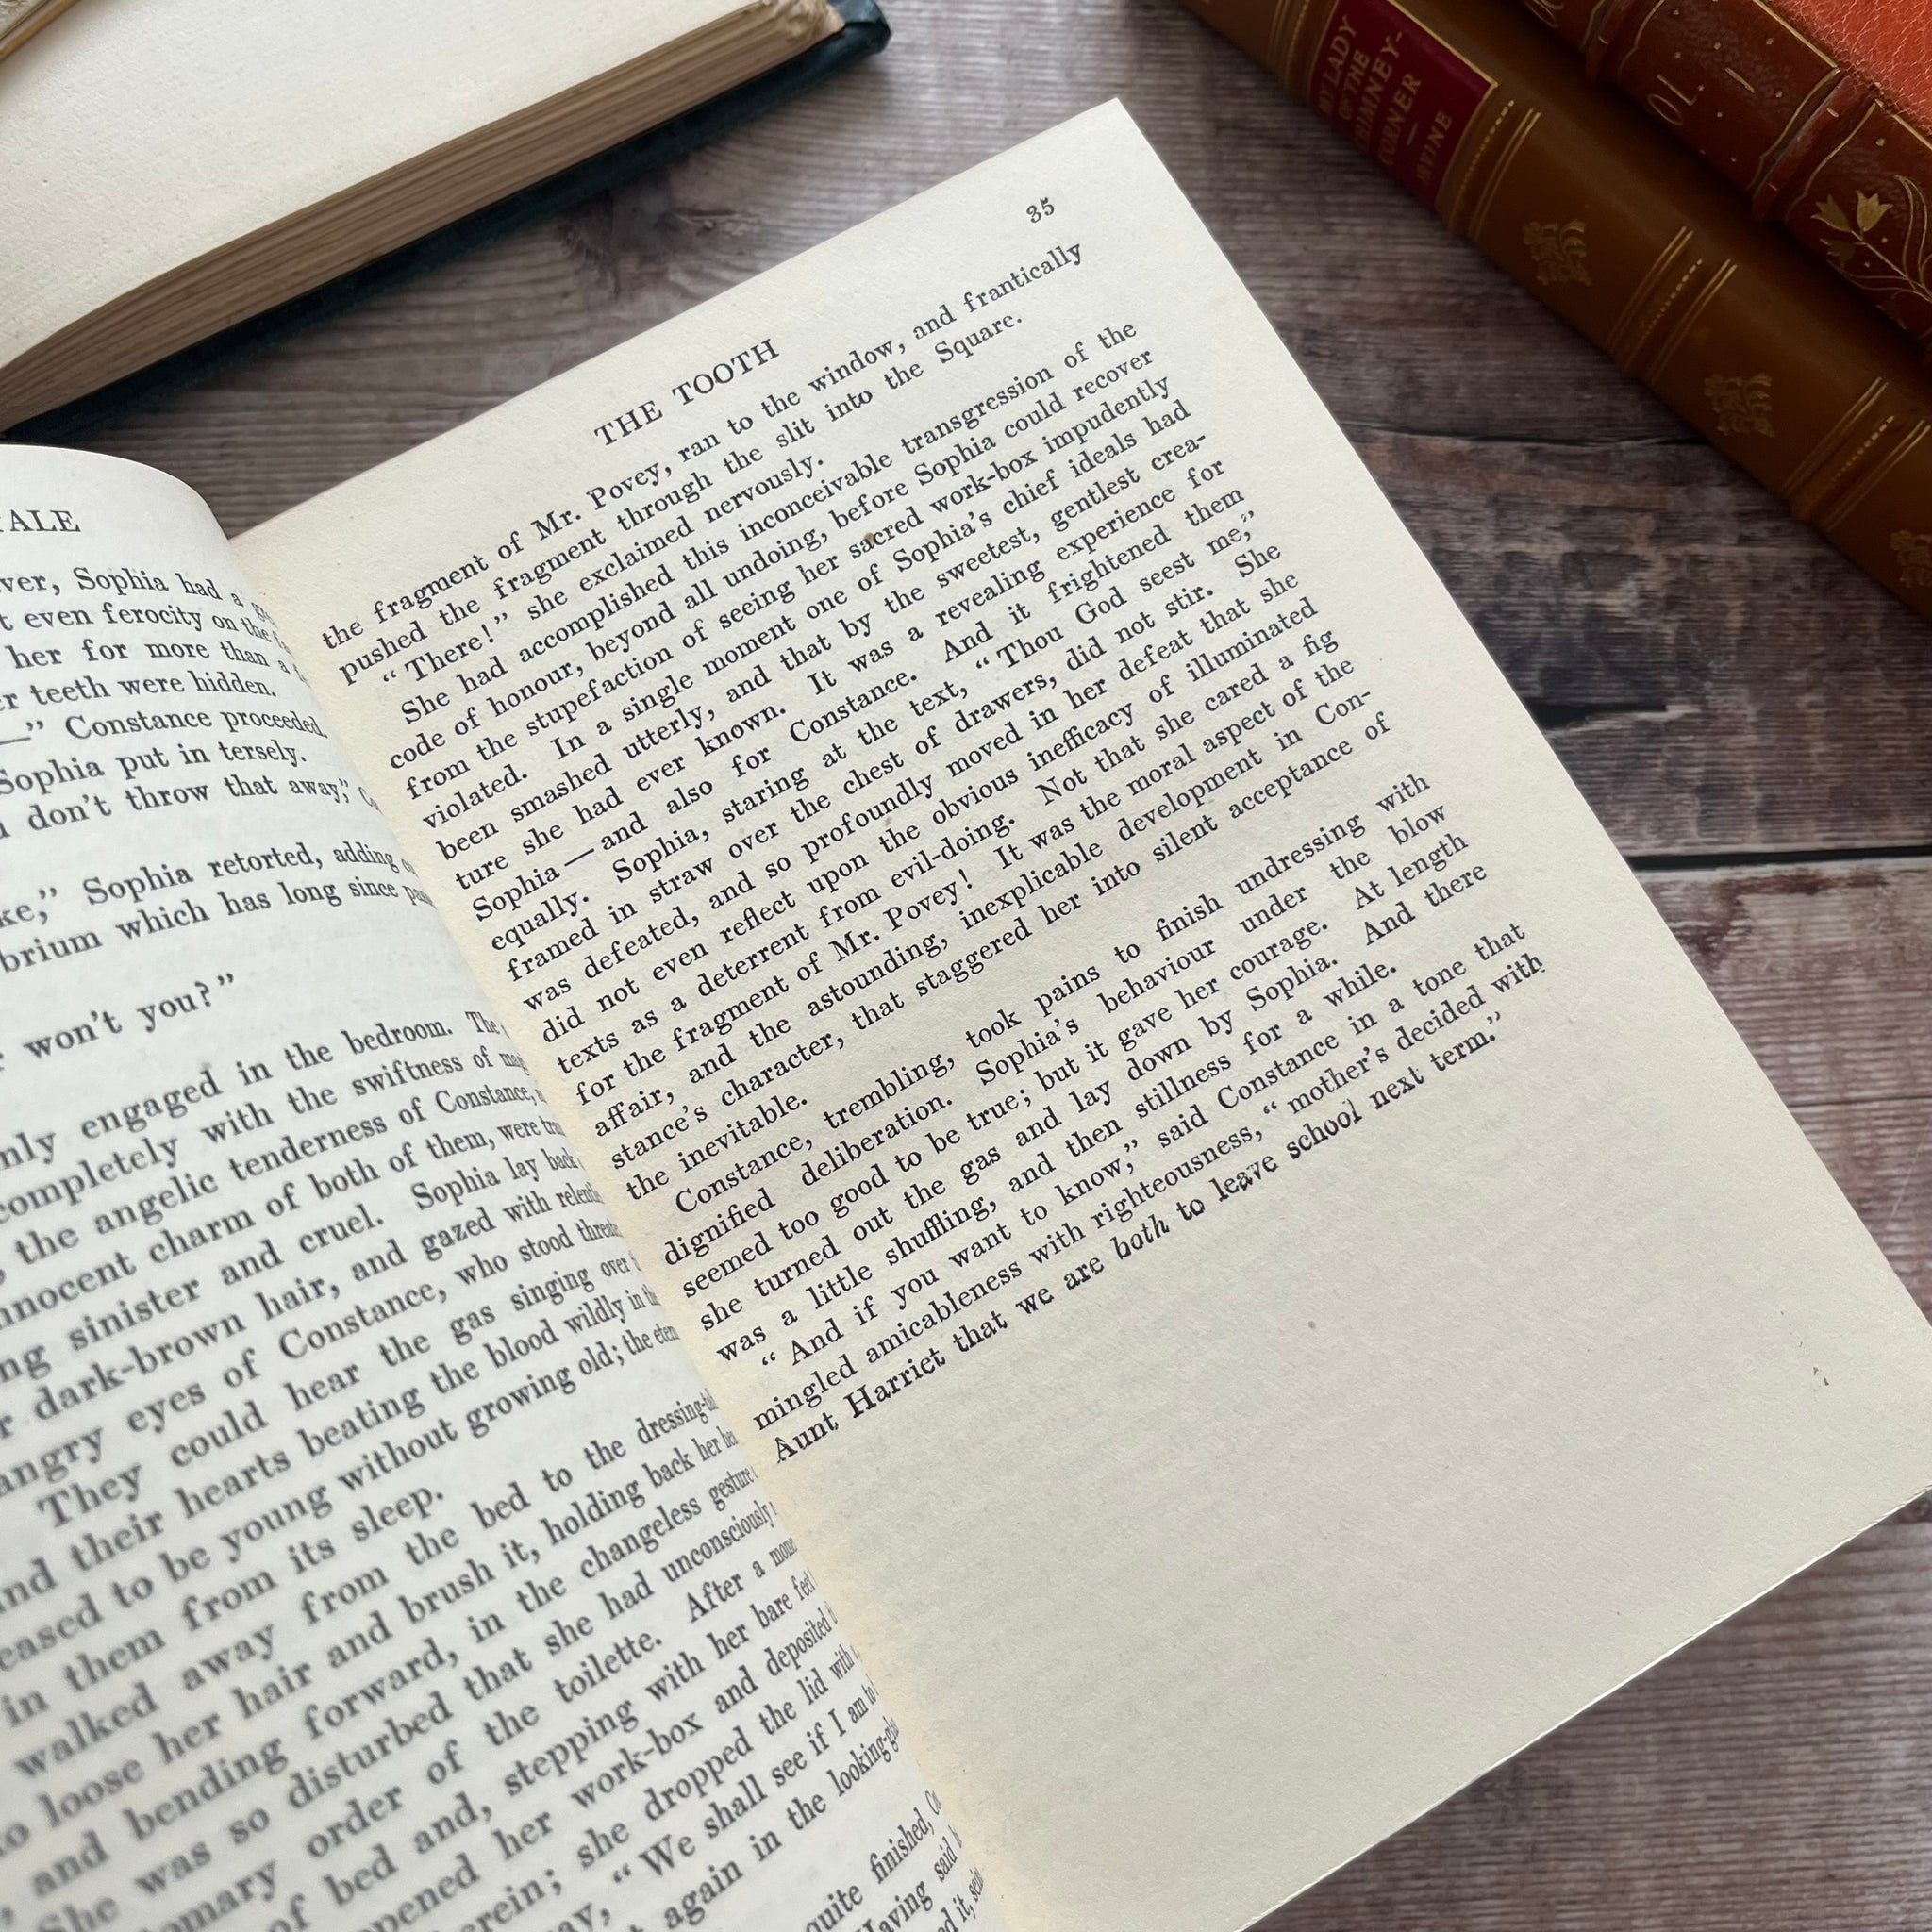 TALE
ver, Sophia had a
t even ferocity on the
her for more than a
r teeth were hidden.
—” Constance proceeded.
Sophia put in tersely.
don't throw that away,”
ke,” Sophia retorted, adding
brium which has long since
won't you?”
nly engaged in the bedroom. The
completely with the swiftness of
the angelic tenderness of Constance,
nnocent charm of both of them, were
ng sinister and cruel. Sophia lay back
r dark-brown hair, and gazed with
angry eyes of Constance, who stood
They could hear the gas singing over
and their hearts beating the blood wildly in
eased to be young without growing old; the
in them from its sleep.
walked away from the bed to the dressing-
to loose her hair and brush it, holding back her
and bending forward, in the changeless gesture
She was so disturbed that she had unconsciously
omary order of the toilette. After a
of bed and, stepping with her bare feet
opened her work-box and deposited
erein; she dropped the lid with
ay, “We shall see if I am to
again in the looking-
quite finished,
Having said
d it,
THE TOOTH 35
the fragment of Mr. Povey, ran to the window, and frantically
pushed the fragment through the slit into the Square.
“There!” she exclaimed nervously.
She had accomplished this inconceivable transgression of the
code of honour, beyond all undoing, before Sophia could recover
from the stupefaction of seeing her sacred work-box impudently
violated. In a single moment one of Sophia's chief ideals had
been smashed utterly, and that by the sweetest, gentlest crea-
ture she had ever known. It was a revealing experience for
Sophia—and also for Constance. And it frightened them
equally. Sophia, staring at the text, “Thou God seest me,”
framed in straw over the chest of drawers, did not stir. She
was defeated, and so profoundly moved in her defeat that she
did not even reflect upon the obvious inefficacy of illuminated
texts as a deterrent from evil-doing. Not that she cared a fig
for the fragment of Mr. Povey! It was the moral aspect of the
affair, and the astounding, inexplicable development in Con-
stance's character, that staggered her into silent acceptance of
the inevitable.
Constance, trembling, took pains to finish undressing with
dignified deliberation. Sophia's behaviour under the blow
seemed too good to be true; but it gave her courage. At length
she turned out the gas and lay down by Sophia. And there
was a little shuffling, and then stillness for a while.
“And if you want to know,” said Constance in a tone that
mingled amicableness with righteousness, “mother's decided with
Aunt Harriet that we are both to leave school next term.”
MY LADY
OF THE
CHIMNEY-
CORNER
IRVINE